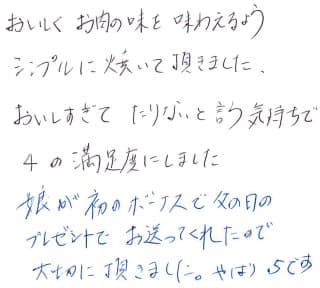 おいしく お肉の味を 味わえるよう
シンプルに 焼いて頂きました、
おいしすぎて たりないと言う気持ちで
4 の満足度にしました
娘が初のボーナスで父の日の
プレゼントで お送ってくれたので
大切に頂きました。やはり 5です